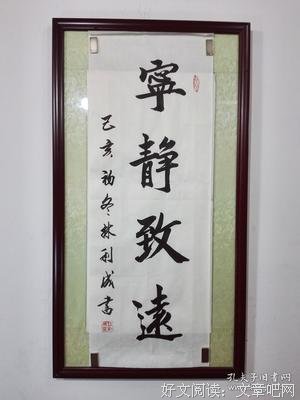 寧靜致遠
己亥初冬林利成書
孔夫子旧书网
好文阅读：文章吧网